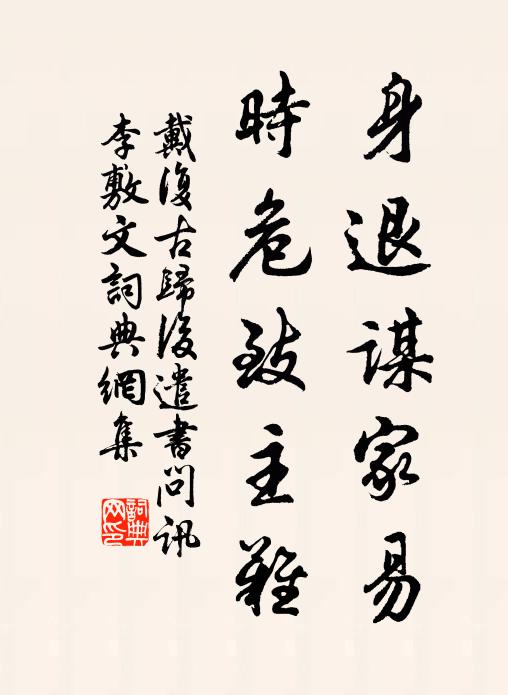 身退謀家易
時危致主難
戴復古歸後遣書問訊
李敷文詞典網集
詞典网印